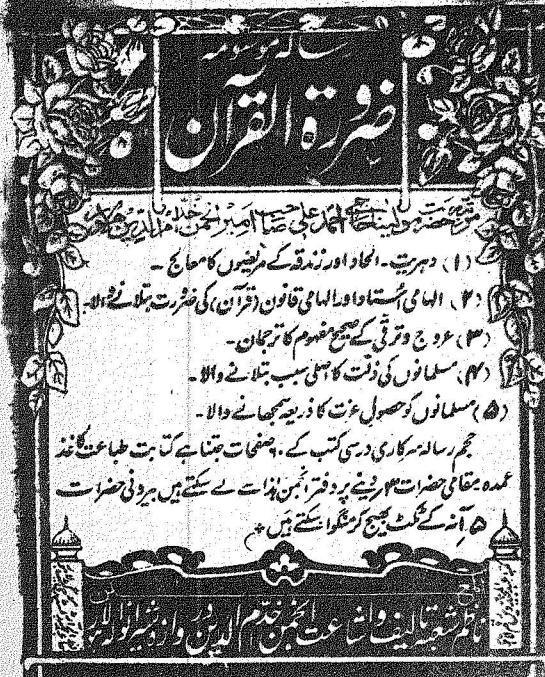 رسالہ موسومہ
ضرورۃ القرآن
مرتبہ حضرت مولینا حاجی احمد علی صاحب امیر انجمن خدام الدین لاہور
(۱) دہریت۔ الحاد اور زندقہ کے مریضوں کا معالج ۔
(۲) الہامی اُستاد اور الہامی قانون (قرآن) کی ضرورت بتلانے والا۔
(۳) عروج و ترقی کے صحیح مفہوم کا ترجمان۔
(۴) مسلمانوں کی ذلّت کا اصلی سبب بتلانے والا ۔
(۵) مسلمانوں کو حصول عزت کا ذریعہ سمجھانے والا ۔
حجم رسالہ سرکاری درسی کتب کے ۰ صفحات جتنا ہے کتابت طباعت کاغذ
عمدہ مقامی حضرات ۴؍ دینے پر دفتر انجمن ہٰذا سے لے سکتے ہیں بیرونی حضرات
۵ آنہ کے ٹکٹ بھیج کر منگوا سکتے ہیں
ناظم شعبہ تالیف و اشاعت انجمن خدام الدین دروازہ شیرانوالہ لاہور